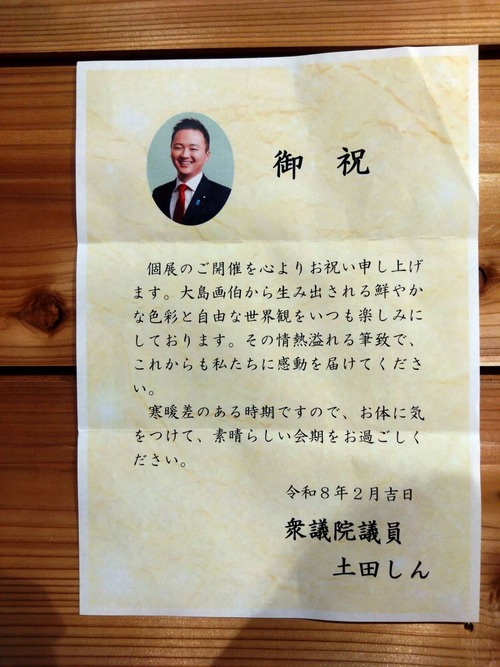 御　祝
個展のご開催を心よりお祝い申し上げ
ます。大島画伯から生み出される鮮やか
な色彩と自由な世界観をいつも楽しみに
しております。その情熱溢れる筆致で、
これからも私たちに感動を届けてくださ
い。
寒暖差のある時期ですので、お体に気
をつけて、素晴らしい会期をお過ごしく
ださい。
令和８年２月吉日
衆議院議員
土田しん